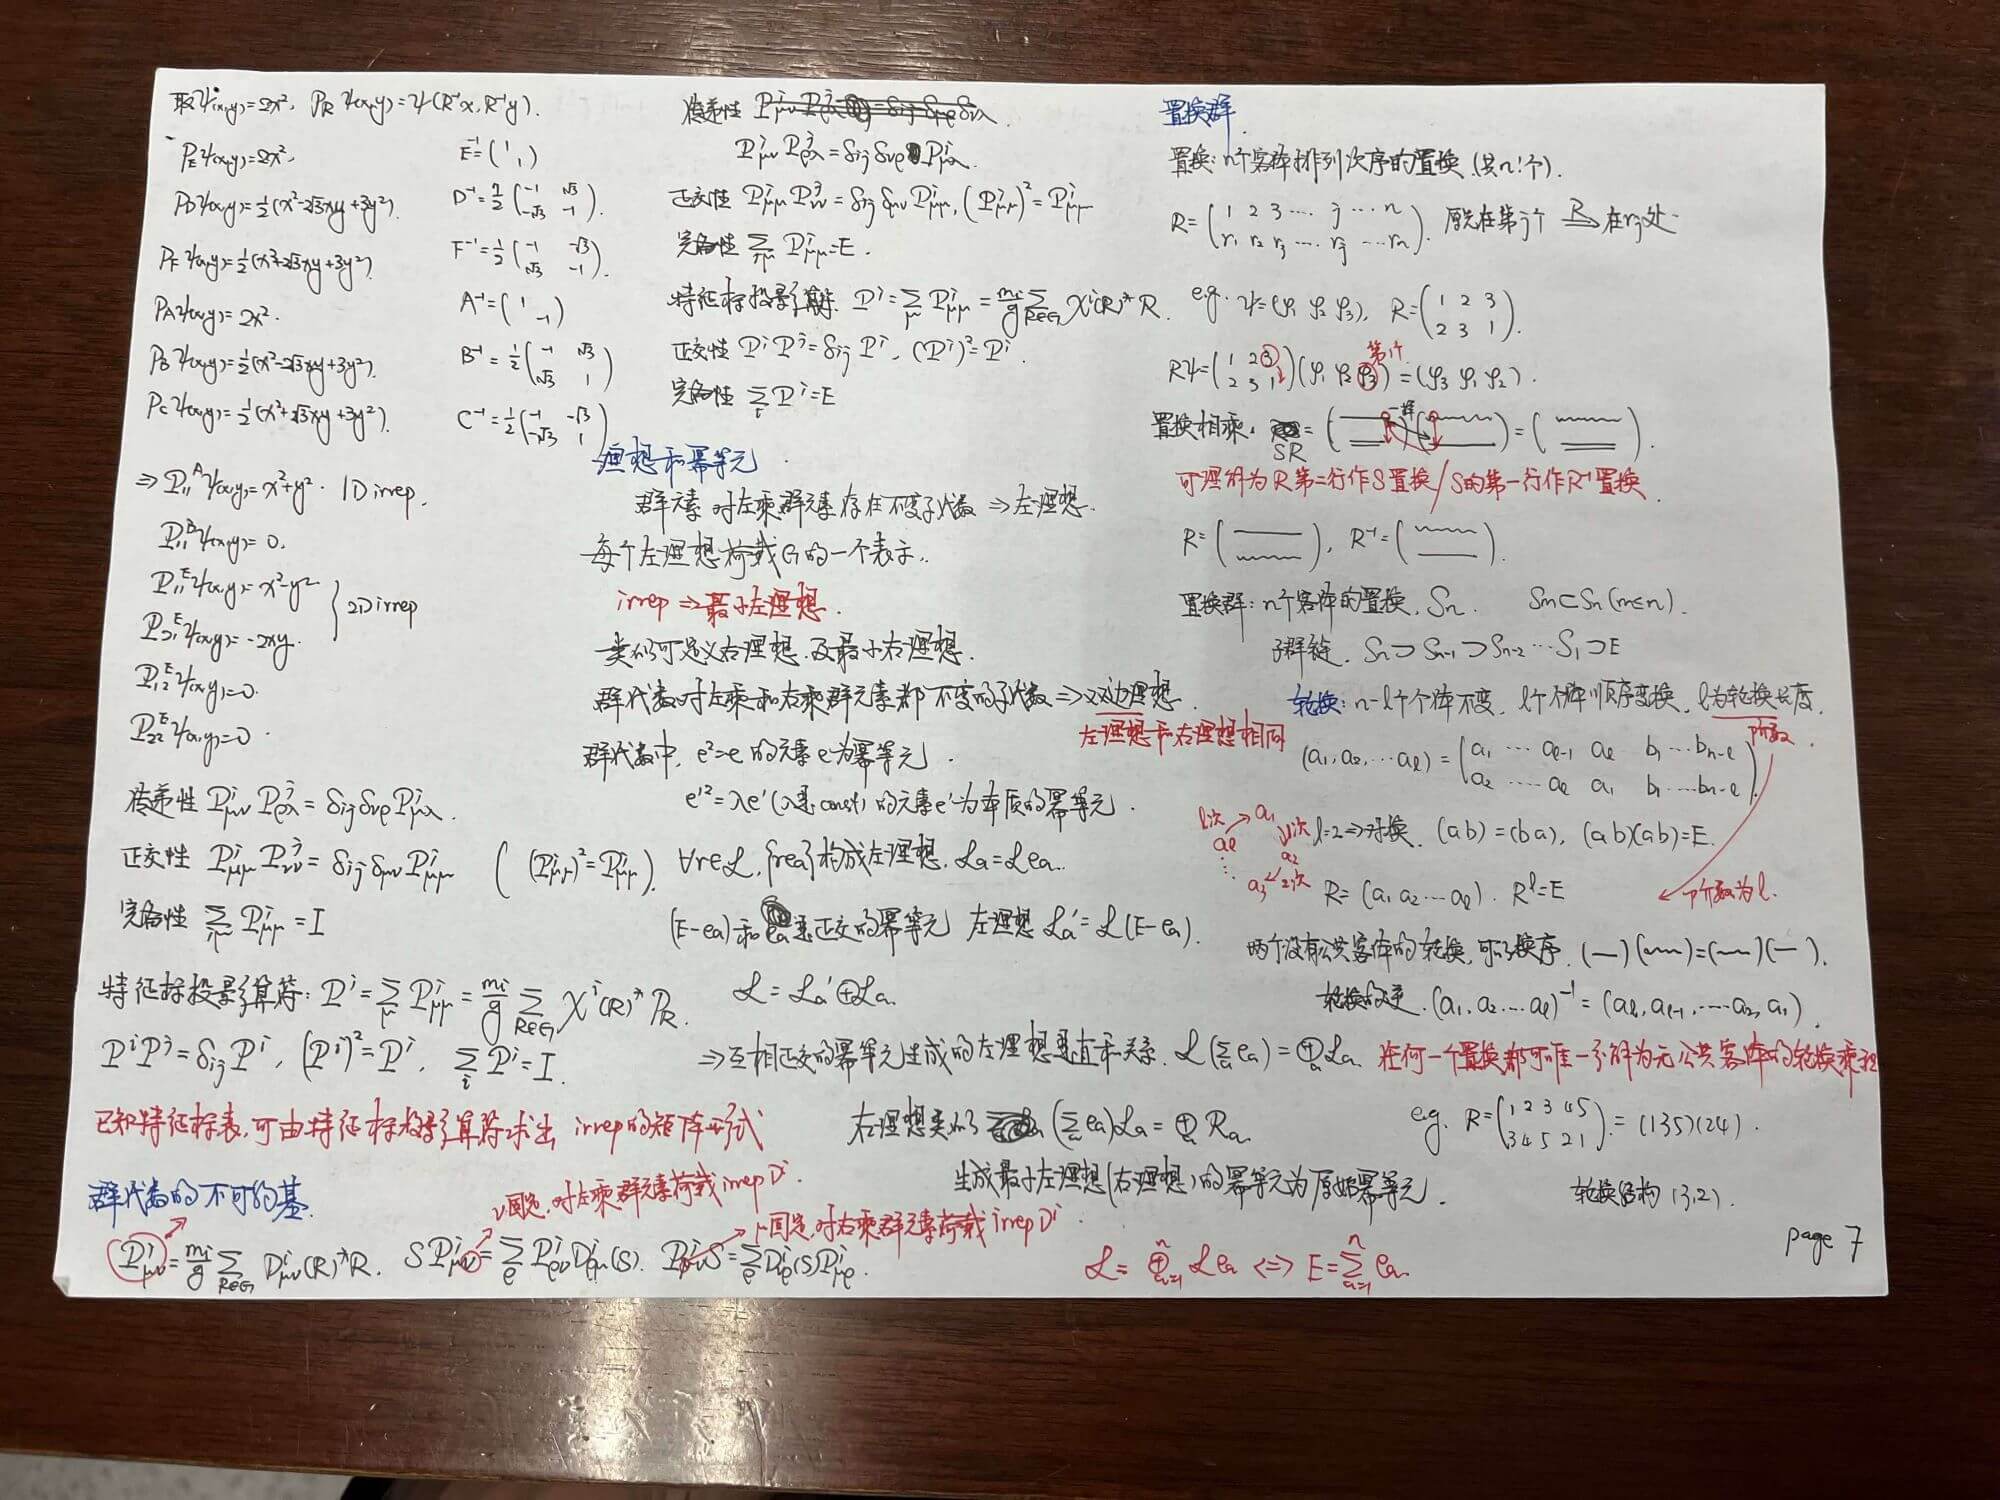 取ψ(x,y)=2x², P_R ψ(x,y)=ψ(R⁻¹x, R⁻¹y).
P_E ψ(x,y)=2x², E⁻¹=(1 1)
P_D ψ(x,y)=½(x²-2√3xy+3y²). D⁻¹=½(-1 √3 / -√3 -1).
P_F ψ(x,y)=½(x²+2√3xy+3y²). F⁻¹=½(-1 -√3 / √3 -1).
P_A ψ(x,y)=2x². A⁻¹=(1 -1)
P_B ψ(x,y)=½(x²-2√3xy+3y²). B⁻¹=½(-1 √3 / √3 1)
P_C ψ(x,y)=½(x²+2√3xy+3y²). C⁻¹=½(-1 -√3 / -√3 1)
⇒ P₁₁^A ψ(x,y)=x²+y². 1D irrep.
P₁₁^B ψ(x,y)=0.
P₁₁^E ψ(x,y)=x²-y²
P₂₁^E ψ(x,y)=-2xy. } 2D irrep
P₁₂^E ψ(x,y)=0.
P₂₂^E ψ(x,y)=0.
传递性 P^i_μν P^j_ρλ = δ_ij δ_νρ P^i_μλ.
正交性 P^i_μμ P^j_νν = δ_ij δ_μν P^i_μμ ((P^i_μμ)²=P^i_μμ).
完备性 Σ_iμ P^i_μμ = I
特征标投影算符: P^i = Σ_μ P^i_μμ = m_i/g Σ_{R∈G} χ^i(R)* P_R.
P^i P^j = δ_ij P^i, (P^i)²=P^i, Σ_i P^i = I.
已知特征标表,可由特征标投影算符求出 irrep的矩阵形式
群代数的不可约基.
ν固定,对左乘群元素荷载irrep D^i.
μ固定,对右乘群元素荷载irrep D^i.
P^i_μν = m_i/g Σ_{R∈G} D^i_μν(R)* R. S P^i_μν = Σ_ρ P^i_ρν D^i_ρμ(S). P^i_μν S = Σ_ρ D^i_νρ(S) P^i_μρ.
传递性
P^i_μν P^j_ρλ = δ_ij δ_νρ P^i_μλ.
正交性 P^i_μμ P^j_νν = δ_ij δ_μν P^i_μμ, (P^i_μμ)² = P^i_μμ
完备性 Σ_iμ P^i_μμ = E.
特征标投影算符. P^i = Σ_μ P^i_μμ = m_i/g Σ_{R∈G} χ^i(R)* R.
正交性 P^i P^j = δ_ij P^i, (P^i)² = P^i.
完备性 Σ_i P^i = E
理想和幂等元.
群元素 对左乘群元素存在不变子代数 ⇒ 左理想.
每个左理想荷载G的一个表示.
irrep ⇒ 最小左理想.
类似可定义右理想.及最小右理想.
群代数对左乘和右乘群元素都不变的子代数 ⇒ 双边理想.
左理想和右理想相同
群代数中, e²=e 的元素e为幂等元.
e'²=λe'(λ是const) 的元素e'为本质的幂等元.
∀r∈L, {re_a}构成左理想. L_a = L e_a.
(E-e_a)和e_a是正交的幂等元 左理想 L_a' = L(E-e_a).
L = L_a' ⊕ L_a.
⇒ 互相正交的幂等元生成的左理想是直和关系. L(Σ_a e_a) = ⊕_a L_a.
右理想类似 (Σ_a e_a)L_a = ⊕_a R_a.
生成最小左理想(右理想)的幂等元为原始幂等元.
L = ⊕_{a=1}^n L e_a ⟺ E = Σ_{a=1}^n e_a.
置换群.
置换: n个客体排列次序的置换.(共n!个).
R=(1 2 3 .... j ... n / r₁ r₂ r₃ .... r_j ... r_n). 原先在第j个 →R 在r_j处.
e.g. ψ=(φ₁ φ₂ φ₃), R=(1 2 3 / 2 3 1).
第1个
Rψ=(1 2 3 / 2 3 1)(φ₁ φ₂ φ₃)=(φ₃ φ₁ φ₂).
置换相乘. SR = ( )( ) = ( ).
一样
可理解为R第二行作S置换/S的第一行作R⁻¹置换.
R=( ), R⁻¹=( ).
置换群: n个客体的置换, S_n. S_m⊂S_n (m≤n).
子群链. S_n ⊃ S_{n-1} ⊃ S_{n-2} ... S₁ ⊃ E
轮换: n-l个个体不变, l个个体顺序变换, l为轮换长度.
阶数.
(a₁, a₂, ... a_l) = (a₁ ... a_{l-1} a_l b₁ ... b_{n-l} / a₂ .... a_l a₁ b₁ ... b_{n-l}).
l次 a₁ 1次 a₂ 2次 a₃ ... a_l
l=2 ⇒ 对换. (a b) = (b a), (a b)(a b) = E.
R=(a₁ a₂ ... a_l). R^l=E ← 阶数为l.
两个没有公共客体的轮换,可以换序. (—)(~~)=(~~)(—).
轮换的逆. (a₁, a₂ ... a_l)⁻¹ = (a_l, a_{l-1}, .... a₂, a₁).
任何一个置换都可唯一分解为无公共客体的轮换乘积
e.g. R=(1 2 3 4 5 / 3 4 5 2 1) = (135)(24).
轮换结构 (3,2).
page 7